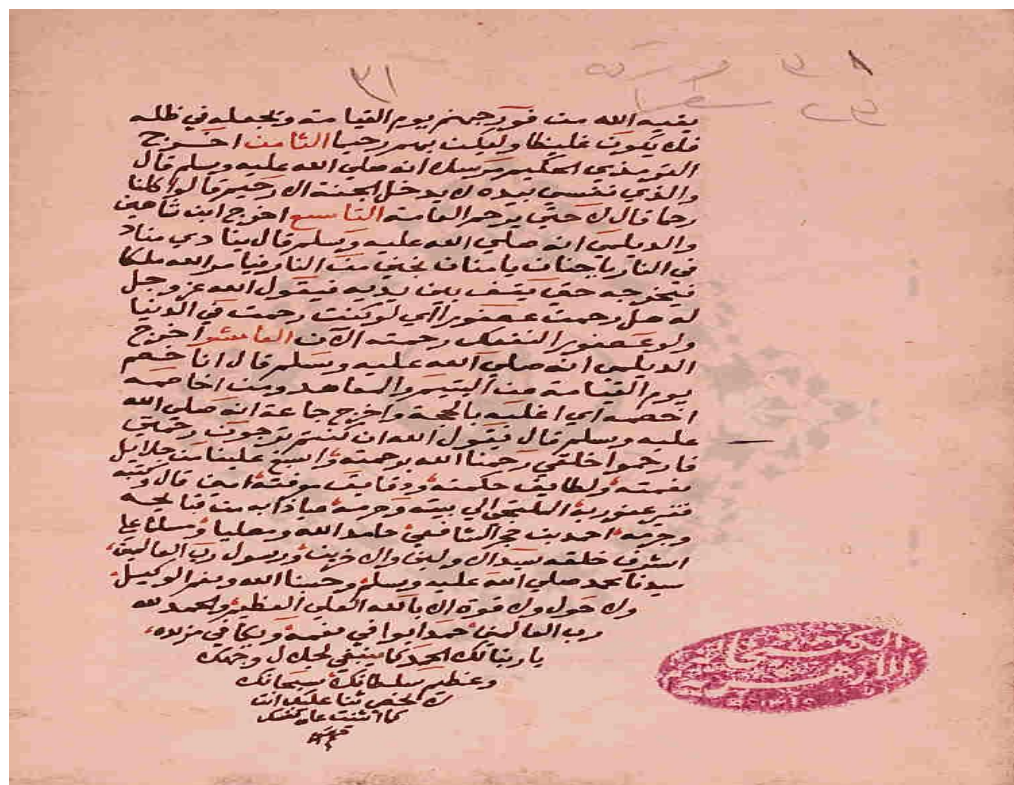 ٣١
يقيه الله من فور جهنم يوم القيامة ويجعله في ظله
فلا يكون غليظا وليكن بهم رحيما الثامن اخرج
الترمذي الحكيم مرسلا انه صلي الله عليه وسلم قال
والذي نفسي بيده لا يدخل الجنة الا رحيم قالوا كلنا
رحما قال لا حتي يرحم العامة التاسع اخرج ابن شاهين
والديلمي انه صلي الله عليه وسلم قال ينادي مناد
في النار يا حنان يا منان نجني من النار فيامر الله ملكا
فيخرجه حتي يقف بين يديه فيقول الله عز وجل
له هل رحمت عصفورا اي لو كنت رحمت في الدنيا
ولو عصفورا لرحمته الآن العاشر اخرج
الديلمي انه صلي الله عليه وسلم قال انا خصم
يوم القيامة عن اليتيم والمعاهد ومن اخاصمه
اخصمه اي اغلبه بالحجة واخرج جماعة انه صلي الله
عليه وسلم قال يقول الله ان كنتم ترجون رحمتي
فارحموا خلقي رحمنا الله برحمته واسبغ علينا من جلايل
نعمته ولطايف حكمته ودقايق امين قال وكتبه
فقير عفو ربه الملتجي الي بيته وحرمه من قبايحه
وجرمه احمد بن حجر الشافعي حامدا لله ومصليا ومسلما علي
اشرف خلقه سيد الاولين والاخرين ورسول رب العالمين
سيدنا محمد صلي الله عليه وسلم وحسبنا الله ونعم الوكيل
ولا حول ولا قوة الا بالله العلي العظيم والحمد لله
رب العالمين حمدا يوافي نعمه ويكافي مزيده
يا ربنا لك الحمد كما ينبغي لجلال وجهك
وعظيم سلطانك سبحانك
لا نحصي ثنا عليك انت
كما اثنيت علي نفسك
المكتبة
الازهرية